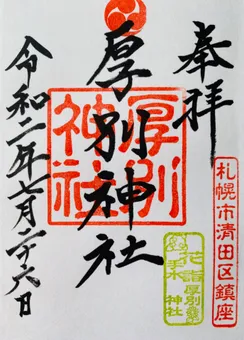 奉拝
厚別神社
令和二年七月二十六日
厚別
神社
札幌市清田区鎮座
花詣
厚別
神社
手水